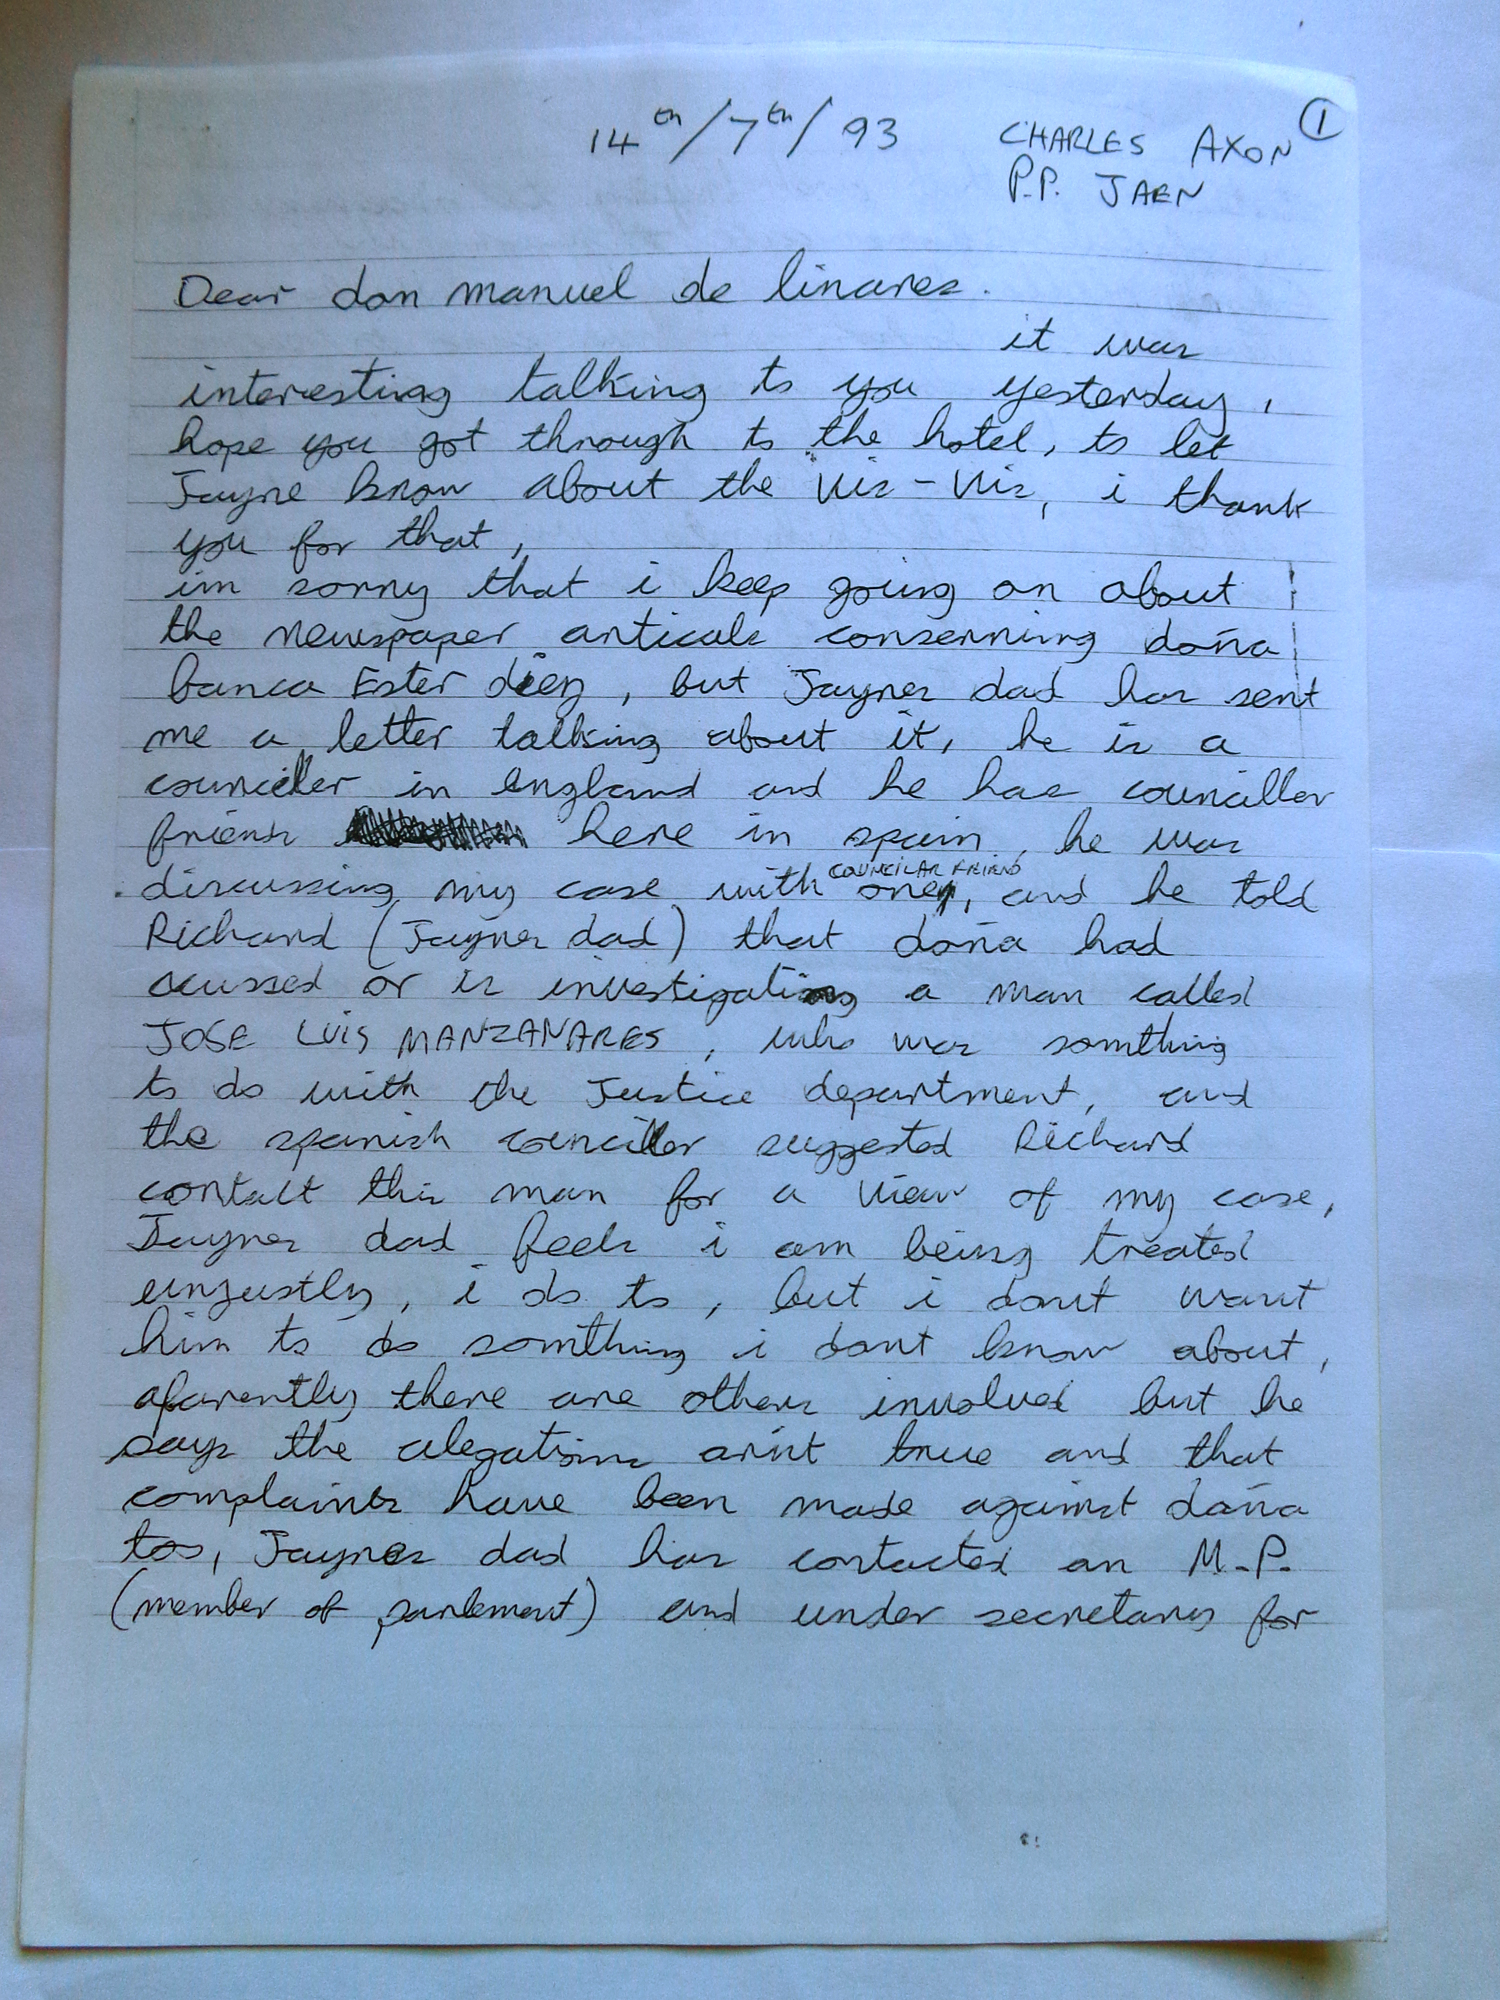 ①
14th/7th/93 CHARLES AXON
P.P. JAEN
Dear don manuel de linares.
it was
interesting talking to you yesterday,
hope you got through to the hotel, to let
Jayne know about the vis-vis, i thank
you for that,
im sorry that i keep going on about
the newspaper articals conserning doña
banca Ester diez, but Jaynes dad has sent
me a letter talking about it, he is a
counciller in england and he has counciller
friens here in spain, he was
discussing my case with one, COUNCILAR FRIEND and he told
Richard (Jaynes dad) that doña had
acussed or is investigating a man called
JOSE LUIS MANZANARES, who was somthing
to do with the Justice department, and
the spanish counciller suggested Richard
contact this man for a view of my case,
Jaynes dad feels i am being treated
unjustly, i do to, but i dont want
him to do somthing i dont know about,
aparently there are others involved but he
says the alegations arint true and that
complaints have been made against doña
too, Jaynes dad has contacted an M.P.
(member of parlement) and under secretary for